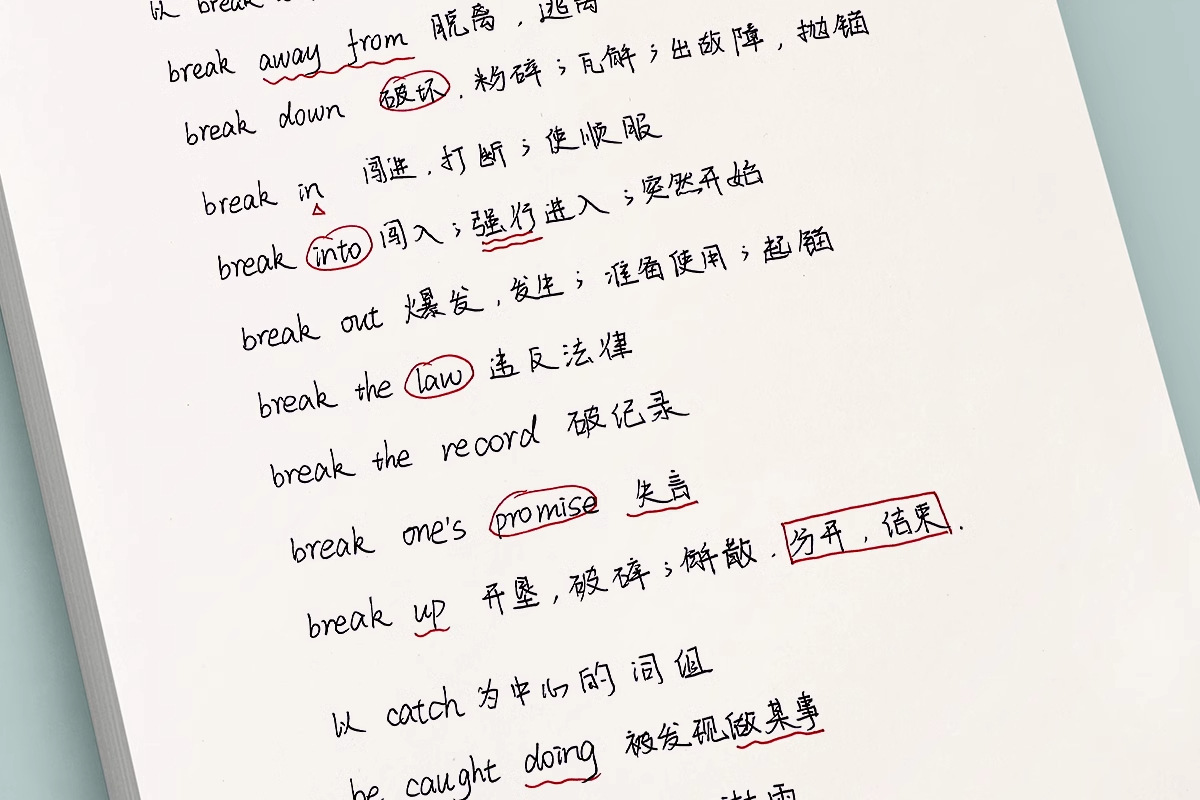 以 break
break away from 脱离，逃离
break down 破坏，粉碎；瓦解；出故障，抛锚
break in 闯进，打断；使顺服
break into 闯入；强行进入；突然开始
break out 爆发，发生；准备使用；起锚
break the law 违反法律
break the record 破纪录
break one's promise 失言
break up 开垦，破碎；解散，分开，结束.
以 catch 为中心的词组
be caught doing 被发现做某事
淋雨